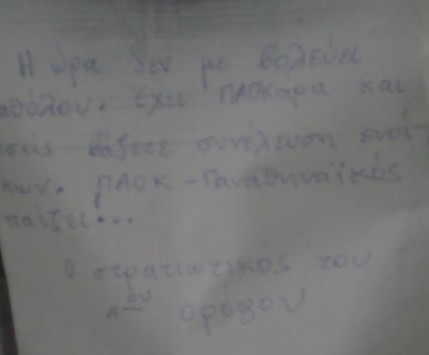 Η ώρα δεν με βολεύει
καθόλου. Έχει ΠΑΟΚάρα και
εσείς βάζετε συνέλευση ενοί-
κων. ΠΑΟΚ - Παναθηναϊκός
παίζει!...
Ο στρατιωτικός του
1ου ορόφου